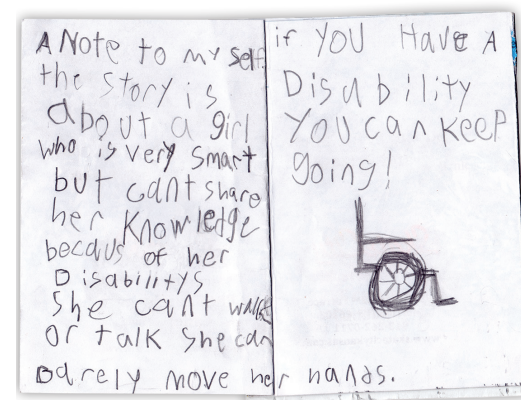 A Note to my self
the story is
about a girl
who is very smart
but cant share
her Knowledge
becaus of her
Disabilitys
She cant walk
or talk She can
barely move her hands.
if YOU Have A
Disability
YOU can KEEP
going!